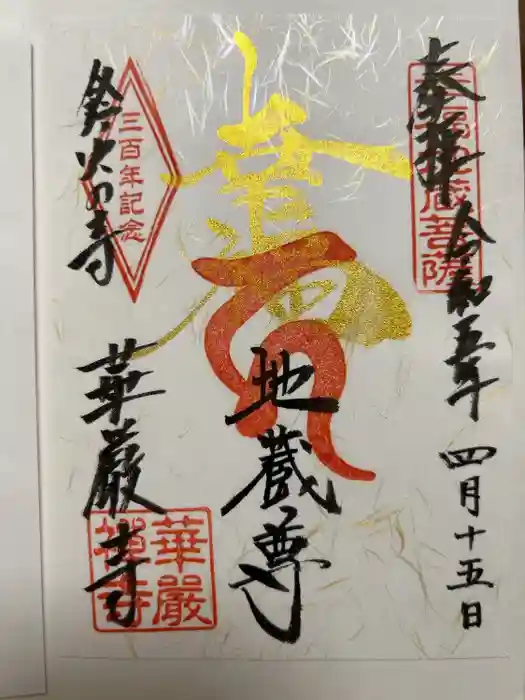 奉拝 令和五年 四月十五日
幸福地蔵菩薩
地蔵尊
三百年記念
鈴虫の寺
華厳寺
華嚴禅寺